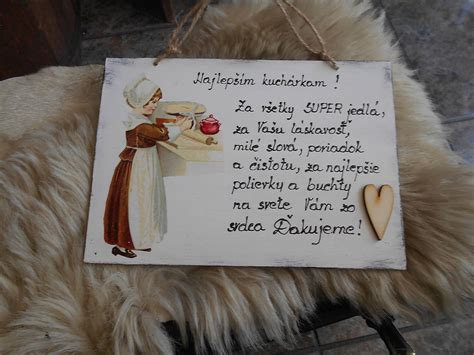 Najlepším kuchárkam!
Za všetky SUPER jedlá,
za Vašu láskavosť,
milé slová, poriadok
a čistotu, za najlepšie
polievky a buchty
na svete Vám zo
srdca Ďakujeme!